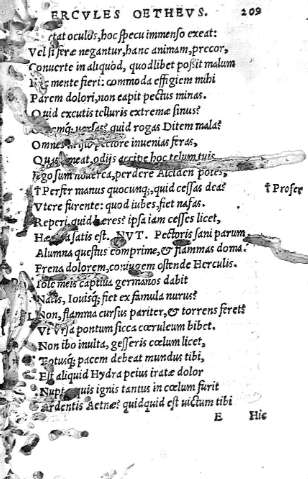 ERCVLES OETHEVS. 209
tat oculos, hoc specu immenso exeat:
Vel si feræ negantur, hanc animam, precor,
Conuerte in aliquod, quodlibet possit malum
mente fieri: commoda effigiem mihi
Parem dolori, non capit pectus minas.
Quid excutis telluris extremæ sinus?
quid rogas Ditem mala?
Omnes pectore inuenies feras,
odijs accipe hoc telum tuis
perdere Alciden potes,
†Perfer manus quocunq;, quid cessas dea? † Profer
Vtere furente: quod iubes, fiet nefas.
Reperi, quid hæres? ipsa iam cesses licet,
satis est. NVT. Pectoris sani parum
Alumna questus comprime, & flammas doma.
Frena dolorem, coniugem ostende Herculis.
Iole meis captiua germanos dabit
Natis, Iouisq; fiet ex famula nurus?
Non, flamma cursus pariter, & torrens feret?
Vt Vrsa pontum sicca cœruleum bibet.
Non ibo inulta, gesseris cœlum licet,
Totusq; pacem debeat mundus tibi,
Est aliquid Hydra peius iratæ dolor
Nuptæ. quis ignis tantus in cœlum furit
Ardentis Aetnæ? quidquid est uictum tibi
E Hic